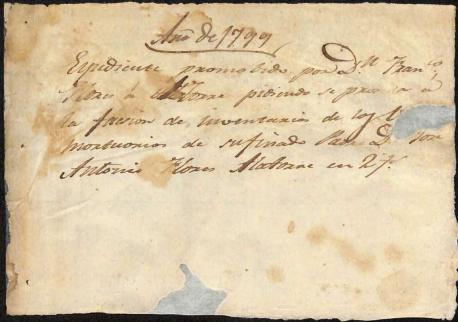 Año de 1799
Expediente promobido por Dn. Franco
Flores Alatorre pidiendo se proceda a
la facion de inventarios de los
mortuorios de su finado Padre D. Jose
Antonio Flores Alatorre en 27